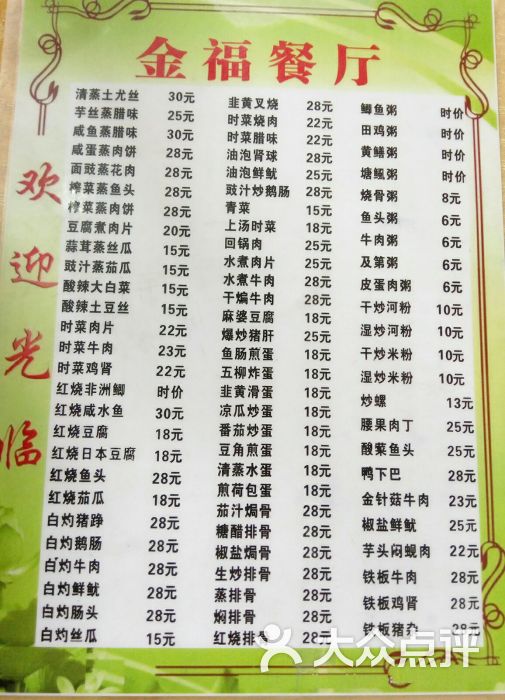 金福餐厅
欢迎光临
清蒸土尤丝 30元
芋丝蒸腊味 25元
咸鱼蒸腊味 30元
咸蛋蒸肉饼 28元
面豉蒸花肉 28元
榨菜蒸鱼头 28元
榨菜蒸肉饼 28元
豆腐煮肉片 20元
蒜茸蒸丝瓜 15元
豉汁蒸茄瓜 15元
酸辣大白菜 15元
酸辣土豆丝 15元
时菜肉片 22元
时菜牛肉 23元
时菜鸡肾 22元
红烧非洲鲫 时价
红烧咸水鱼 30元
红烧豆腐 18元
红烧日本豆腐 18元
红烧鱼头 28元
红烧茄瓜 18元
白灼猪踭 28元
白灼鹅肠 28元
白灼牛肉 28元
白灼鲜鱿 28元
白灼肠头 28元
白灼丝瓜 15元
韭黄叉烧 28元
时菜烧肉 22元
时菜腊味 22元
油泡肾球 28元
油泡鲜鱿 25元
豉汁炒鹅肠 28元
青菜 15元
上汤时菜 18元
回锅肉 25元
水煮肉片 28元
水煮牛肉 28元
干煸牛肉 28元
麻婆豆腐 18元
爆炒猪肝 25元
鱼肠煎蛋 18元
五柳炸蛋 18元
韭黄滑蛋 18元
凉瓜炒蛋 18元
番茄炒蛋 18元
豆角煎蛋 18元
清蒸水蛋 18元
煎荷包蛋 18元
茄汁焗骨 28元
糖醋排骨 28元
椒盐焗骨 28元
生炒排骨 28元
蒸排骨 28元
焖排骨 28元
红烧排骨 28元
鲫鱼粥 时价
田鸡粥 时价
黄鳝粥 时价
塘鲺粥 时价
烧骨粥 8元
鱼头粥 6元
牛肉粥 6元
及第粥 6元
皮蛋肉粥 6元
干炒河粉 10元
湿炒河粉 10元
干炒米粉 10元
湿炒米粉 10元
炒螺 13元
腰果肉丁 25元
酸藠鱼头 25元
鸭下巴 28元
金针菇牛肉 23元
椒盐鲜鱿 25元
芋头闷蚬肉 22元
铁板牛肉 28元
铁板鸡肾 28元
铁板猪杂 28元
大众点评